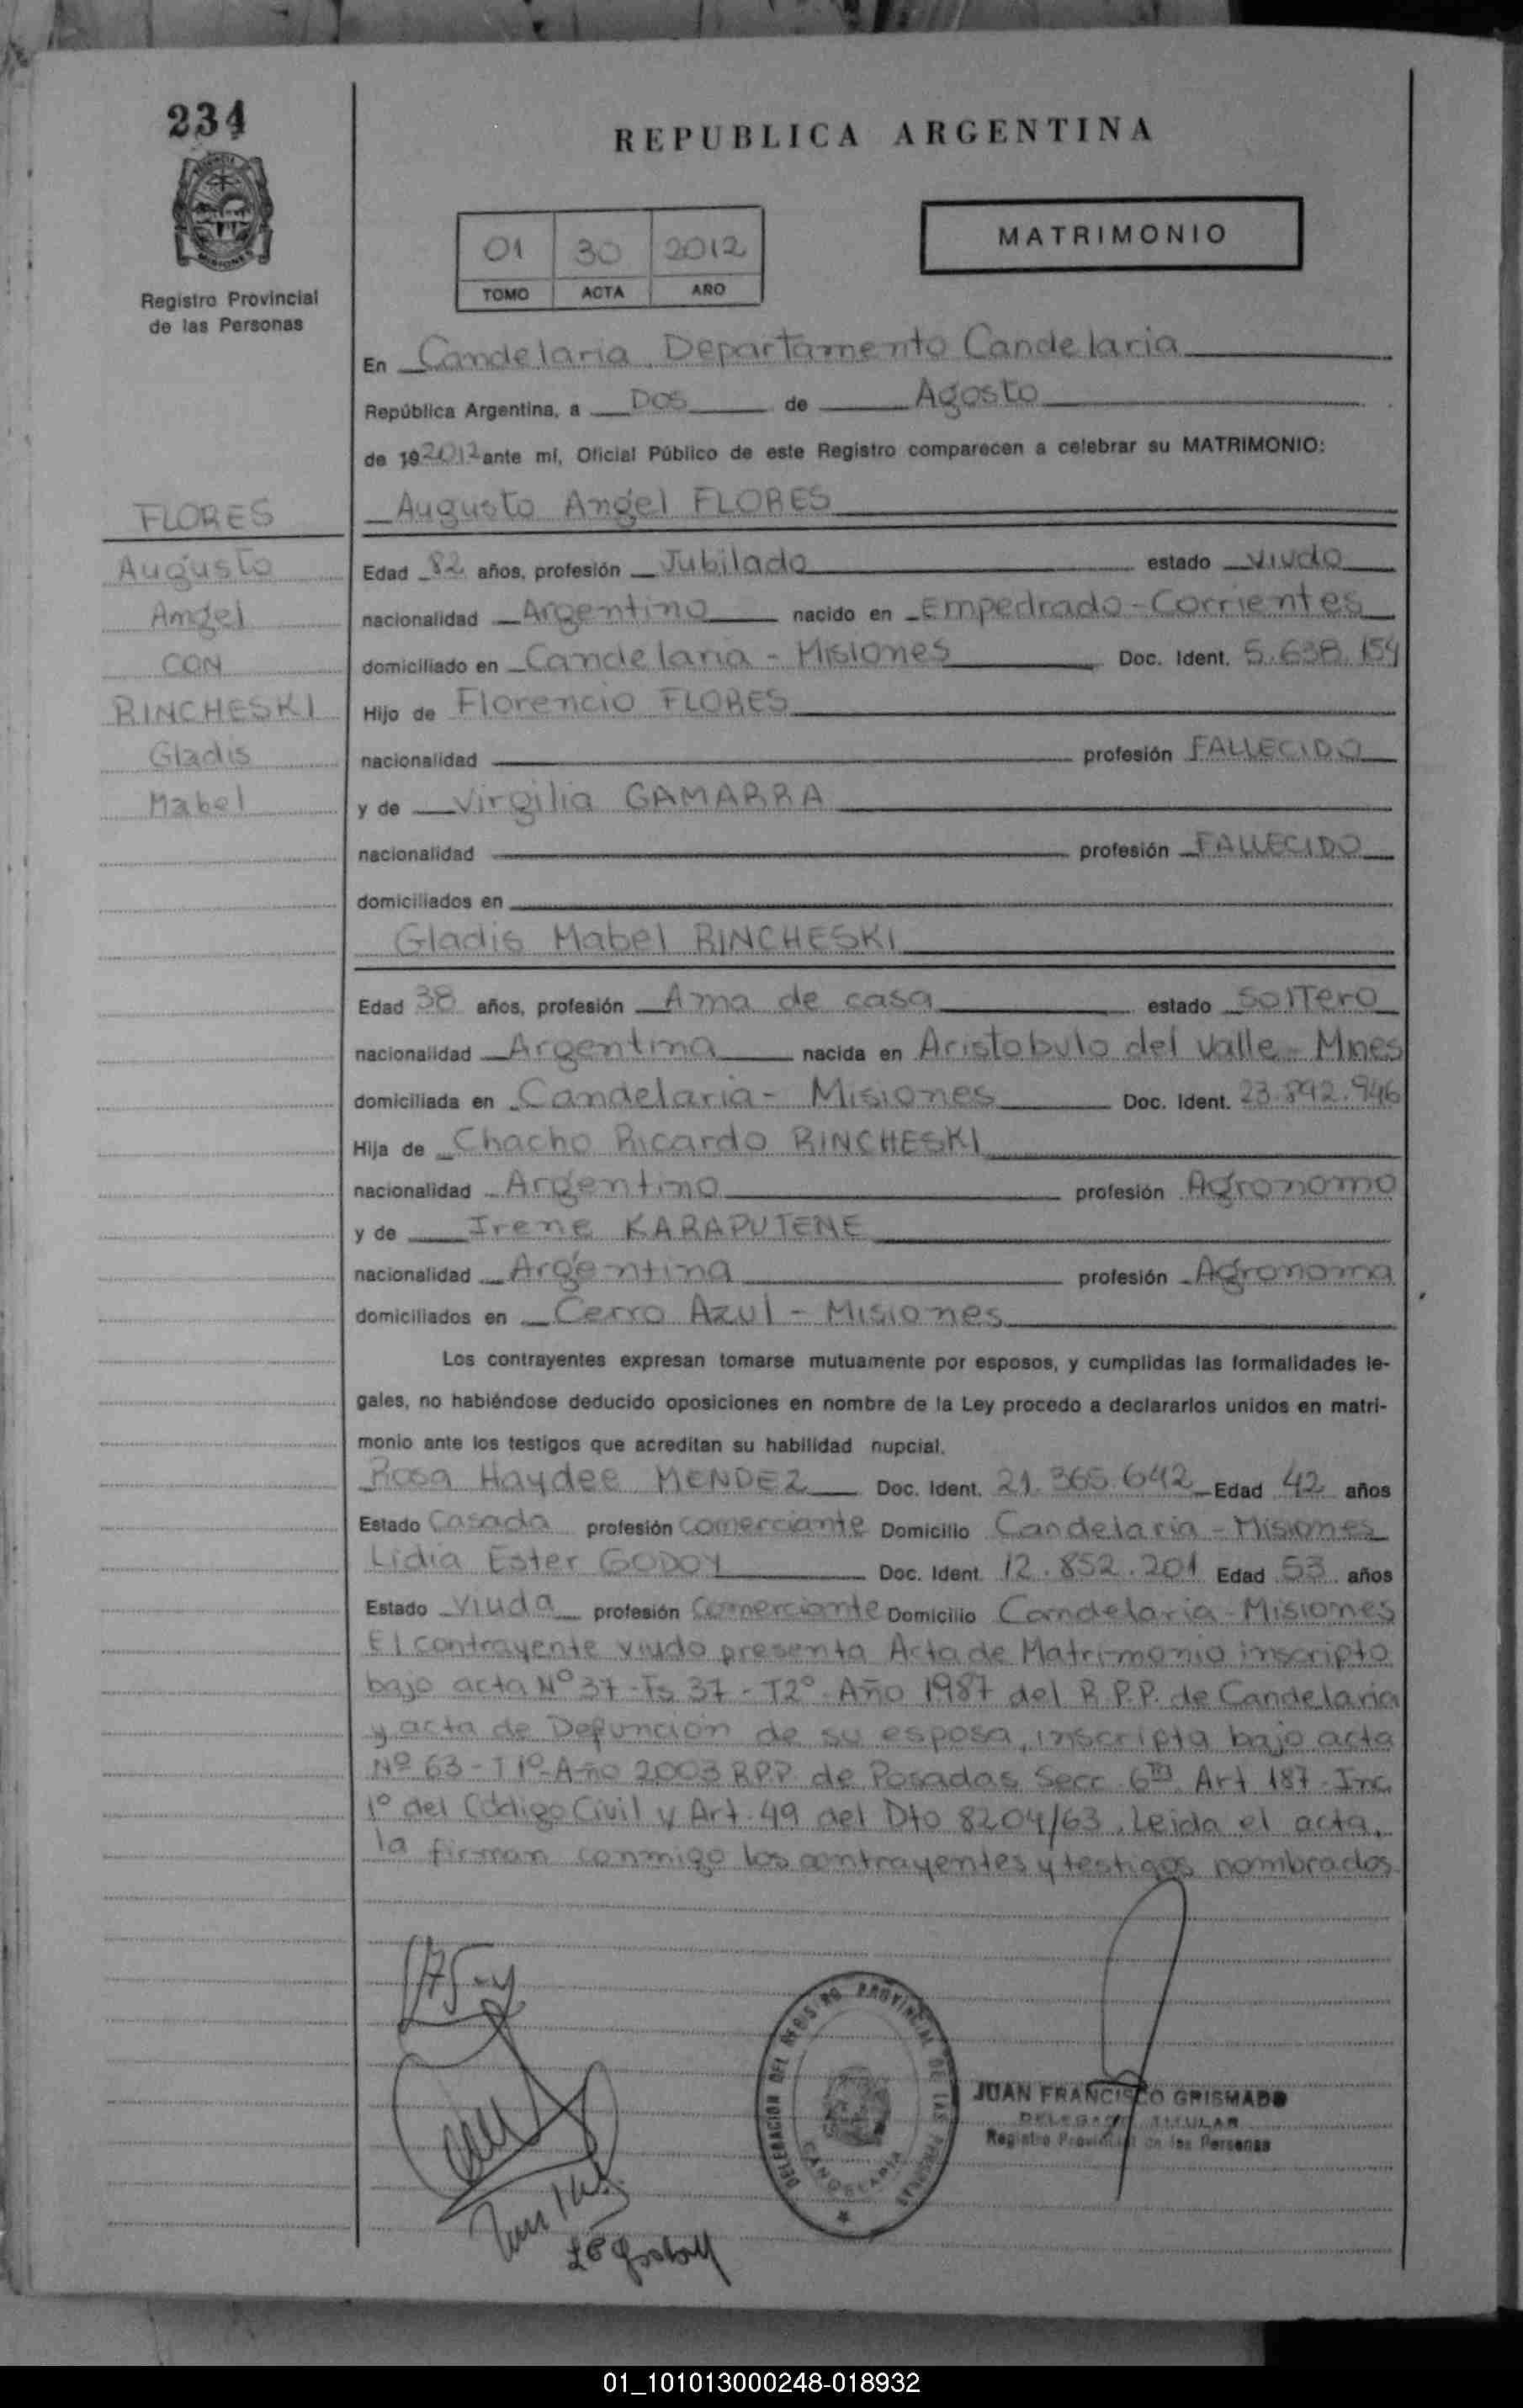 234
REPUBLICA ARGENTINA
MATRIMONIO
01 30 2012
TOMO ACTA AÑO
Registro Provincial
de las Personas
En Candelaria Departamento Candelaria
República Argentina, a Dos de Agosto
de 192012 ante mí, Oficial Público de este Registro comparecen a celebrar su MATRIMONIO:
FLORES
Augusto
Angel
CON
RINCHESKI
Gladis
Mabel
Augusto Angel FLORES
Edad 82 años, profesión Jubilado estado viudo
nacionalidad Argentino nacido en Empedrado-Corrientes
domiciliado en Candelaria - Misiones Doc. Ident. 5.638.154
Hijo de Florencio FLORES
nacionalidad profesión FALLECIDO
y de Virgilia GAMARRA
nacionalidad profesión FALLECIDO
domiciliados en
Gladis Mabel RINCHESKI
Edad 38 años, profesión Ama de casa estado soltero
nacionalidad Argentina nacida en Aristobulo del Valle - Mnes
domiciliada en Candelaria - Misiones Doc. Ident. 23.892.946
Hija de Chacho Ricardo RINCHESKI
nacionalidad Argentino profesión Agronomo
y de Irene KARAPUTENE
nacionalidad Argentina profesión Agronoma
domiciliados en Cerro Azul - Misiones
Los contrayentes expresan tomarse mutuamente por esposos, y cumplidas las formalidades le-
gales, no habiéndose deducido oposiciones en nombre de la Ley procedo a declararlos unidos en matri-
monio ante los testigos que acreditan su habilidad nupcial.
Rosa Haydee MENDEZ Doc. Ident. 21.365.642 Edad 42 años
Estado Casada profesión comerciante Domicilio Candelaria - Misiones
Lidia Ester GODOY Doc. Ident. 12.852.201 Edad 53 años
Estado Viuda profesión Comerciante Domicilio Candelaria - Misiones
El contrayente viudo presenta Acta de Matrimonio inscripto
bajo acta Nº 37 - Fs 37 - T2º - Año 1987 del R.P.P. de Candelaria
y acta de Defunción de su esposa, inscripta bajo acta
Nº 63 - T 1º - Año 2003 RPP de Posadas Secc 6ta Art 187 - Inc
1º del Código Civil y Art. 49 del Dto 8204/63. Leida el acta,
la firman conmigo los contrayentes y testigos nombrados.
DELEGACION DEL REGISTRO PROVINCIAL DE LAS PERSONAS
CANDELARIA
JUAN FRANCISCO GRISMADO
DELEGADO TITULAR
Registro Provincial de las Personas
01_101013000248-018932